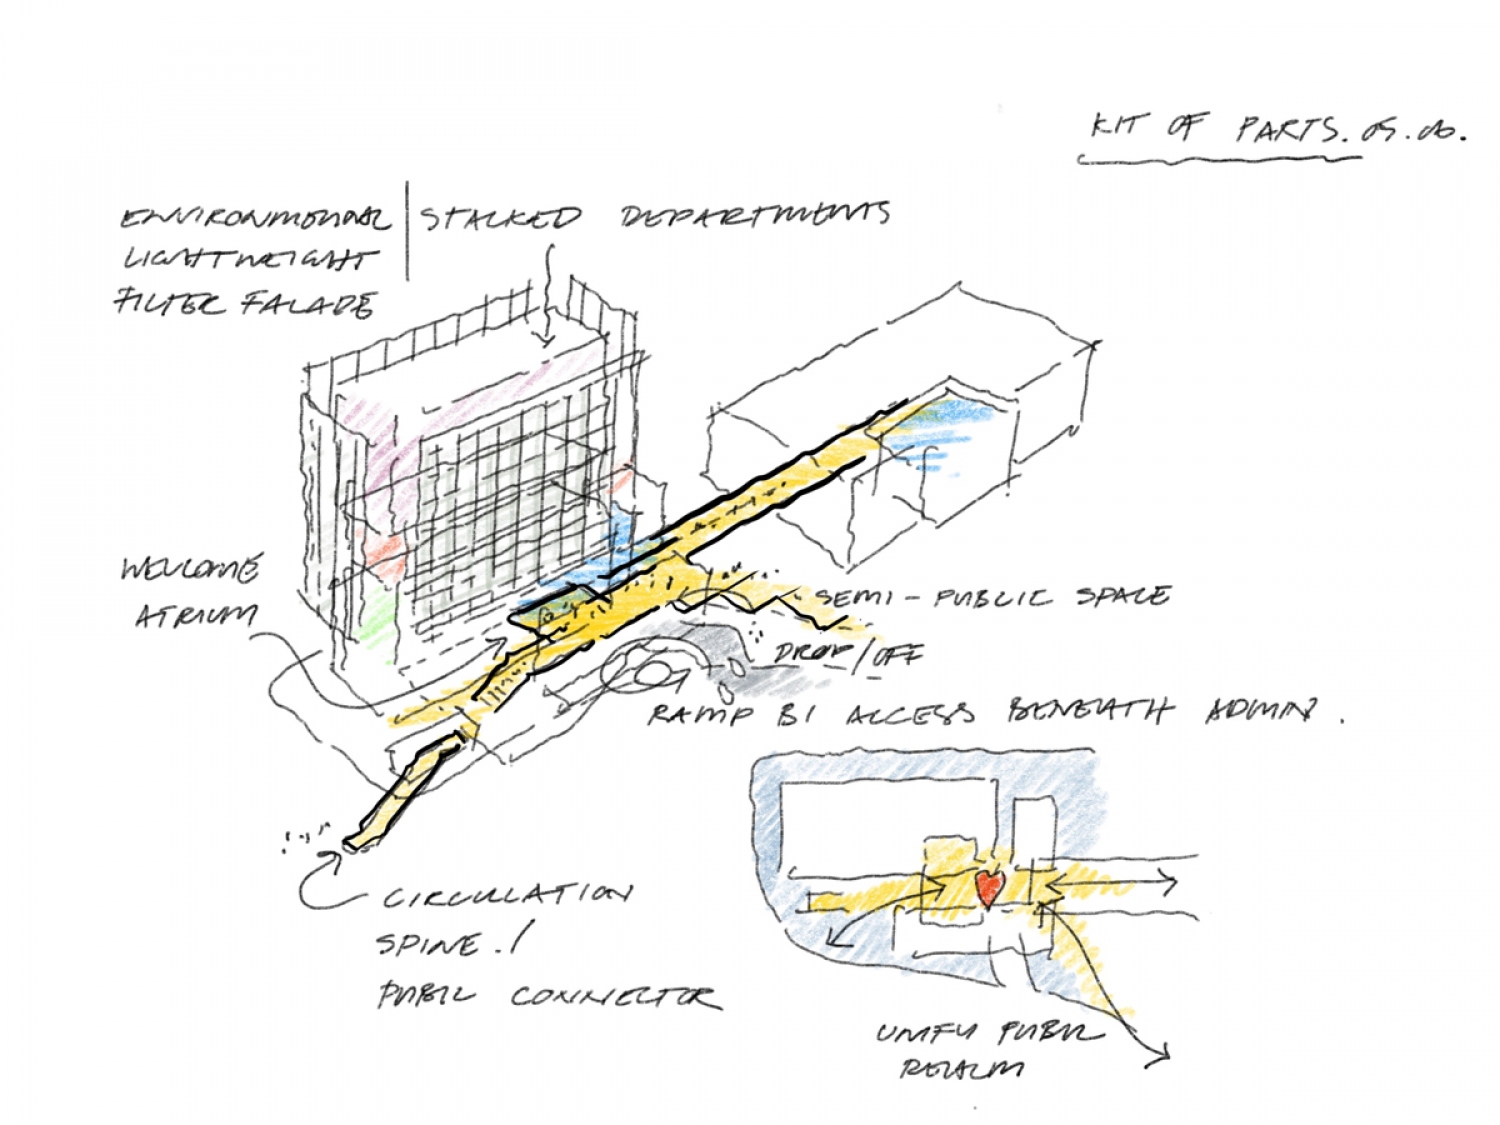 KIT OF PARTS. 05.06.
ENVIRONMENTAL
LIGHTWEIGHT
FILTER FACADE
STACKED DEPARTMENTS
WELCOME
ATRIUM
SEMI-PUBLIC SPACE
DROP/OFF
RAMP B1 ACCESS BENEATH ADMIN.
CIRCULATION
SPINE./
PUBLIC CONNECTOR
UNIFY PUBLIC
REALM